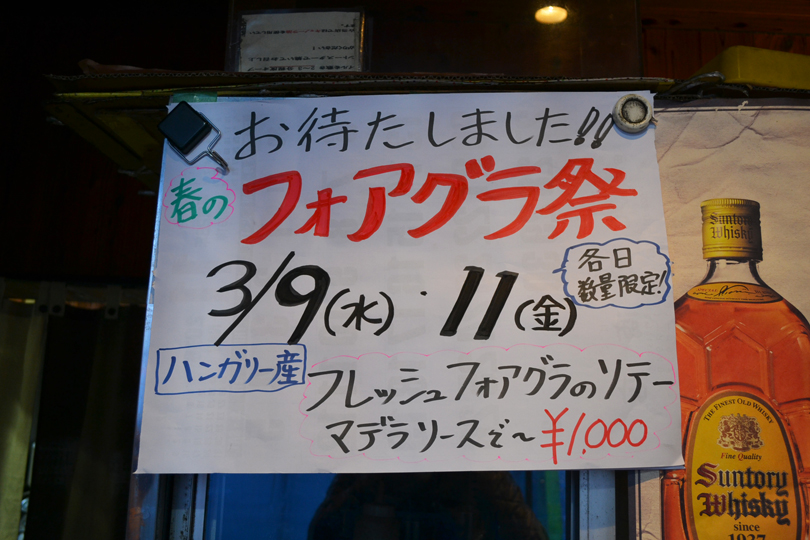 お待たしました!!
春の
フォアグラ祭
3/9(水)・11(金)
各日
数量限定!
ハンガリー産
フレッシュフォアグラのソテー
マデラソースで～ ¥1,000
Suntory
Whisky
THE FINEST OLD WHISKY
Fine Quality
Suntory
Whisky
since
1937